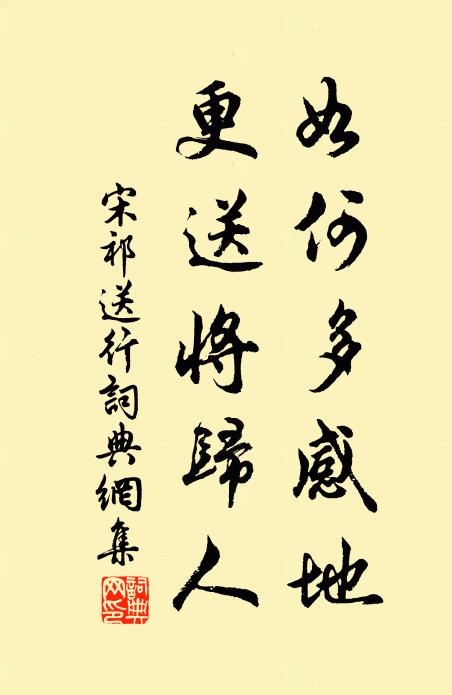 如何多感地
更送將歸人
宋祁送行詞典網集
詞典網印